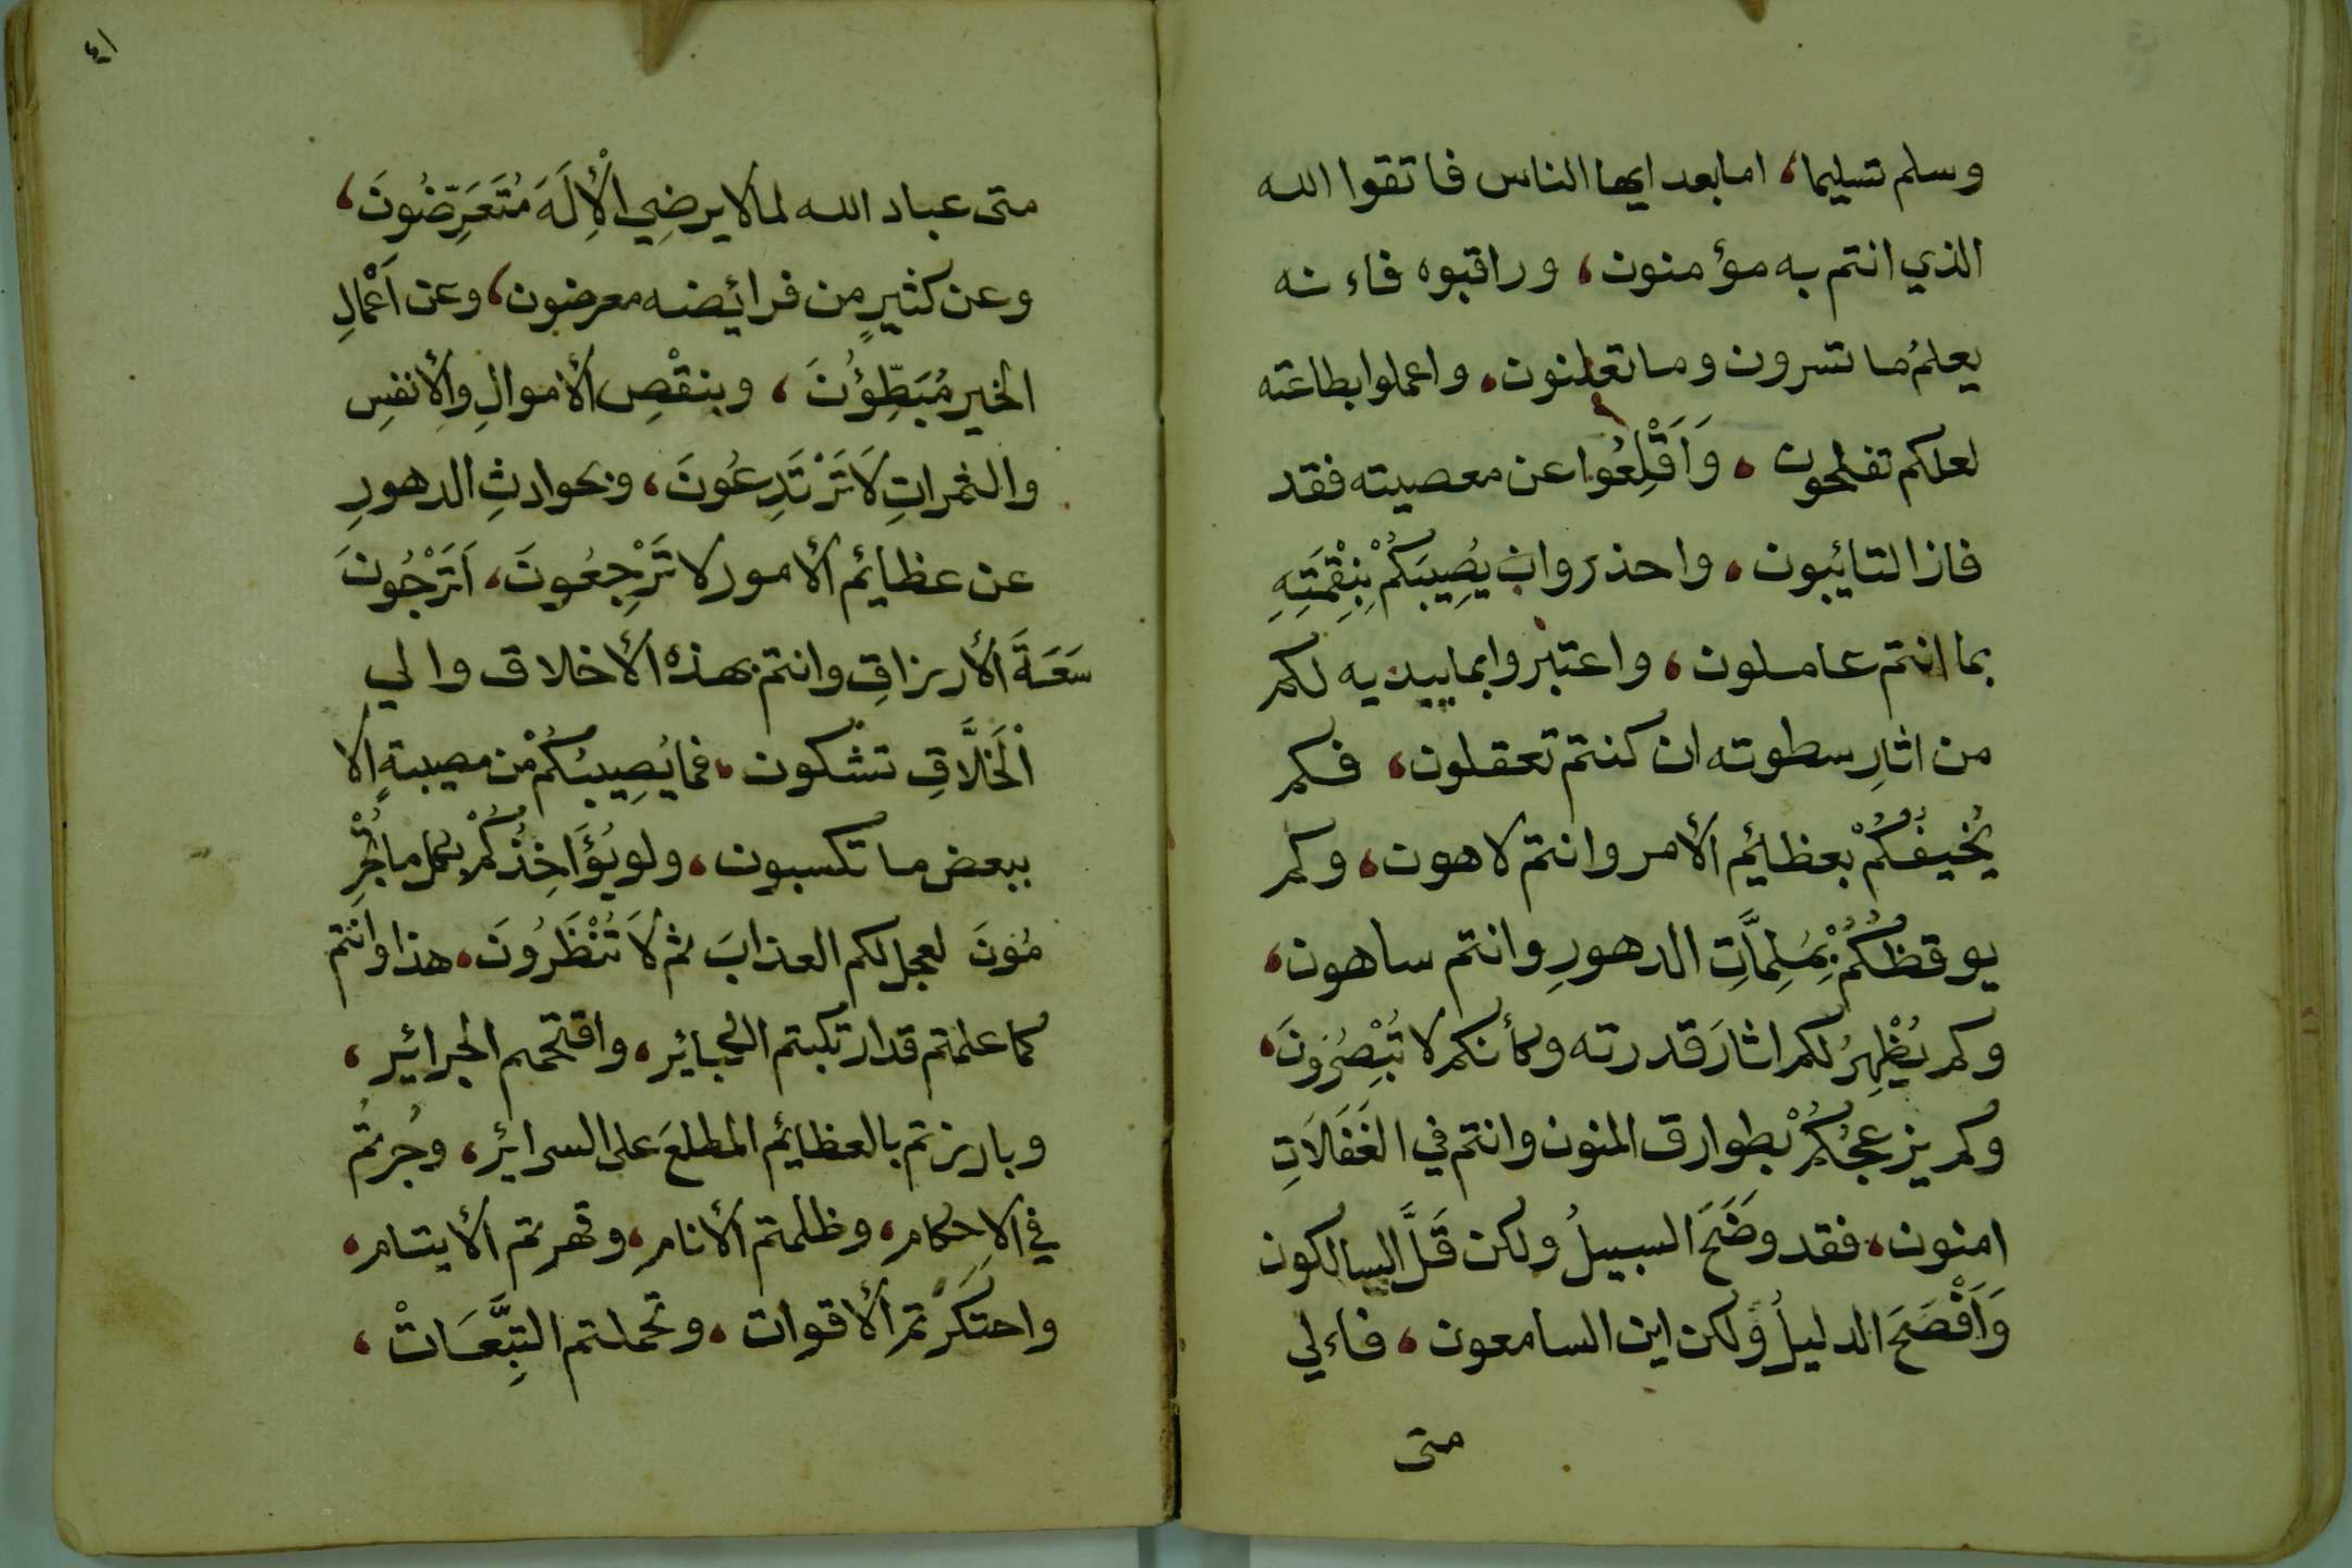 وسلم تسليما، امابعد ايها الناس فاتقوا الله
الذي انتم به مؤمنون، وراقبوه فاءنه
يعلمُ ما تسرون وما تعلنون، واعملوا بطاعته
لعلكم تفلحون، وَاَقْلِعُوا عن معصيته فقد
فاز التائبون، واحذروا ان يُصِيبَكُمْ بِنِقْمَتِهِ
بما انتم عاملون، واعتبروا بما يبديه لكم
من اثارِ سطوته ان كنتم تعقلون، فكم
يُخيفُكُمْ بعظائم الأمر وانتم لاهون، وكم
يوقظُكُمْ بِمُلِمَّاتِ الدهورِ وانتم ساهون،
وكم يُظْهِرُ لكم اثارَ قدرته وكأنكم لا تُبْصِرُونَ،
وكم يزعجُكُمْ بطوارق المنون وانتم في الغَفَلَاتِ
امنون، فقد وضَحَ السبيلُ ولكن قَلَّ السالكون
وَاَفْصَحَ الدليلُ ولكن اين السامعون، فاءلي
متى
٤١
متى عباد الله لما لا يرضِي الْأِلَهَ مُتَعَرِّضُونَ،
وعن كثيرٍ من فرائضه معرضون، وعن اَعْمالِ
الخير مُبَطِّؤُنَ، وبنقْصِ الأموالِ والأنفسِ
والثمراتِ لَا تَرْتَدِعُونَ، وبحوادثِ الدهورِ
عن عظائم الأمور لا تَرْجِعُونَ، اَتَرْجُونَ
سَعَةَ الأرزاقِ وانتم بهذه الأخلاق والي
اْلخَلَّاقِ تشكون، فما يُصِيبُكُمْ من مصيبةٍ الا
ببعض ما تكسبون، ولو يُؤَاخِذُكُمْ بكل ما تُجْرِ
مُونَ لعجل لكم العذابَ ثم لَا تُنْظَرُونَ، هذا وانتم
كما علمتم قد ارتكبتم الكبائر، واقتحمم الجرائر،
وبارزتم بالعظايم المطلعَ على السرائر، وجُرتُم
في الاحكام، وظلمتم الأنام، وقهرتم الأيتام،
واحتكَرْتم الأقوات، وتحملتم التبَّعَاتْ،